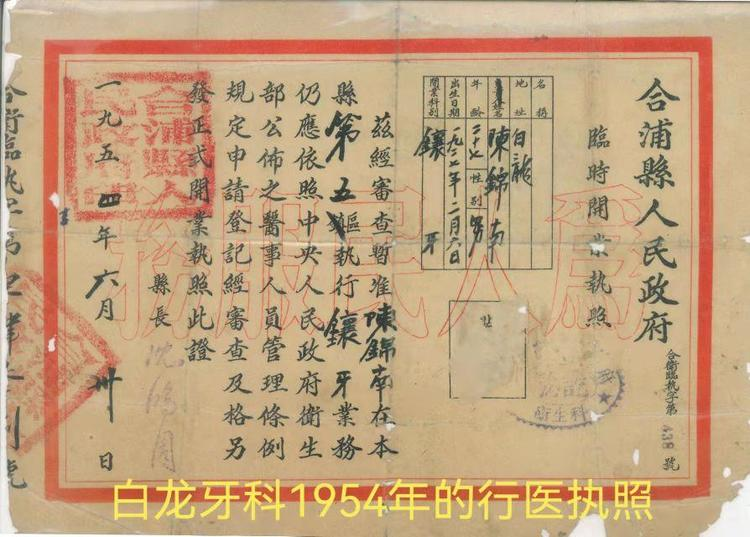 合浦縣人民政府
臨時開業執照
合衛臨執字第438號
名稱
地址 白龍
姓名 陳錦南
年齡 二十七 性別 男
出生日期 一九二七年二月六日
開業科別 鑲牙
茲經審查暫准陳錦南在本
縣第五區執行鑲牙業務
仍應依照中央人民政府衛生
部公佈之醫事人員管理條例
規定申請登記經審查及格另
發正式開業執照此證
縣長
一九五四年六月卅日
為人民服務
白龙牙科1954年的行医执照